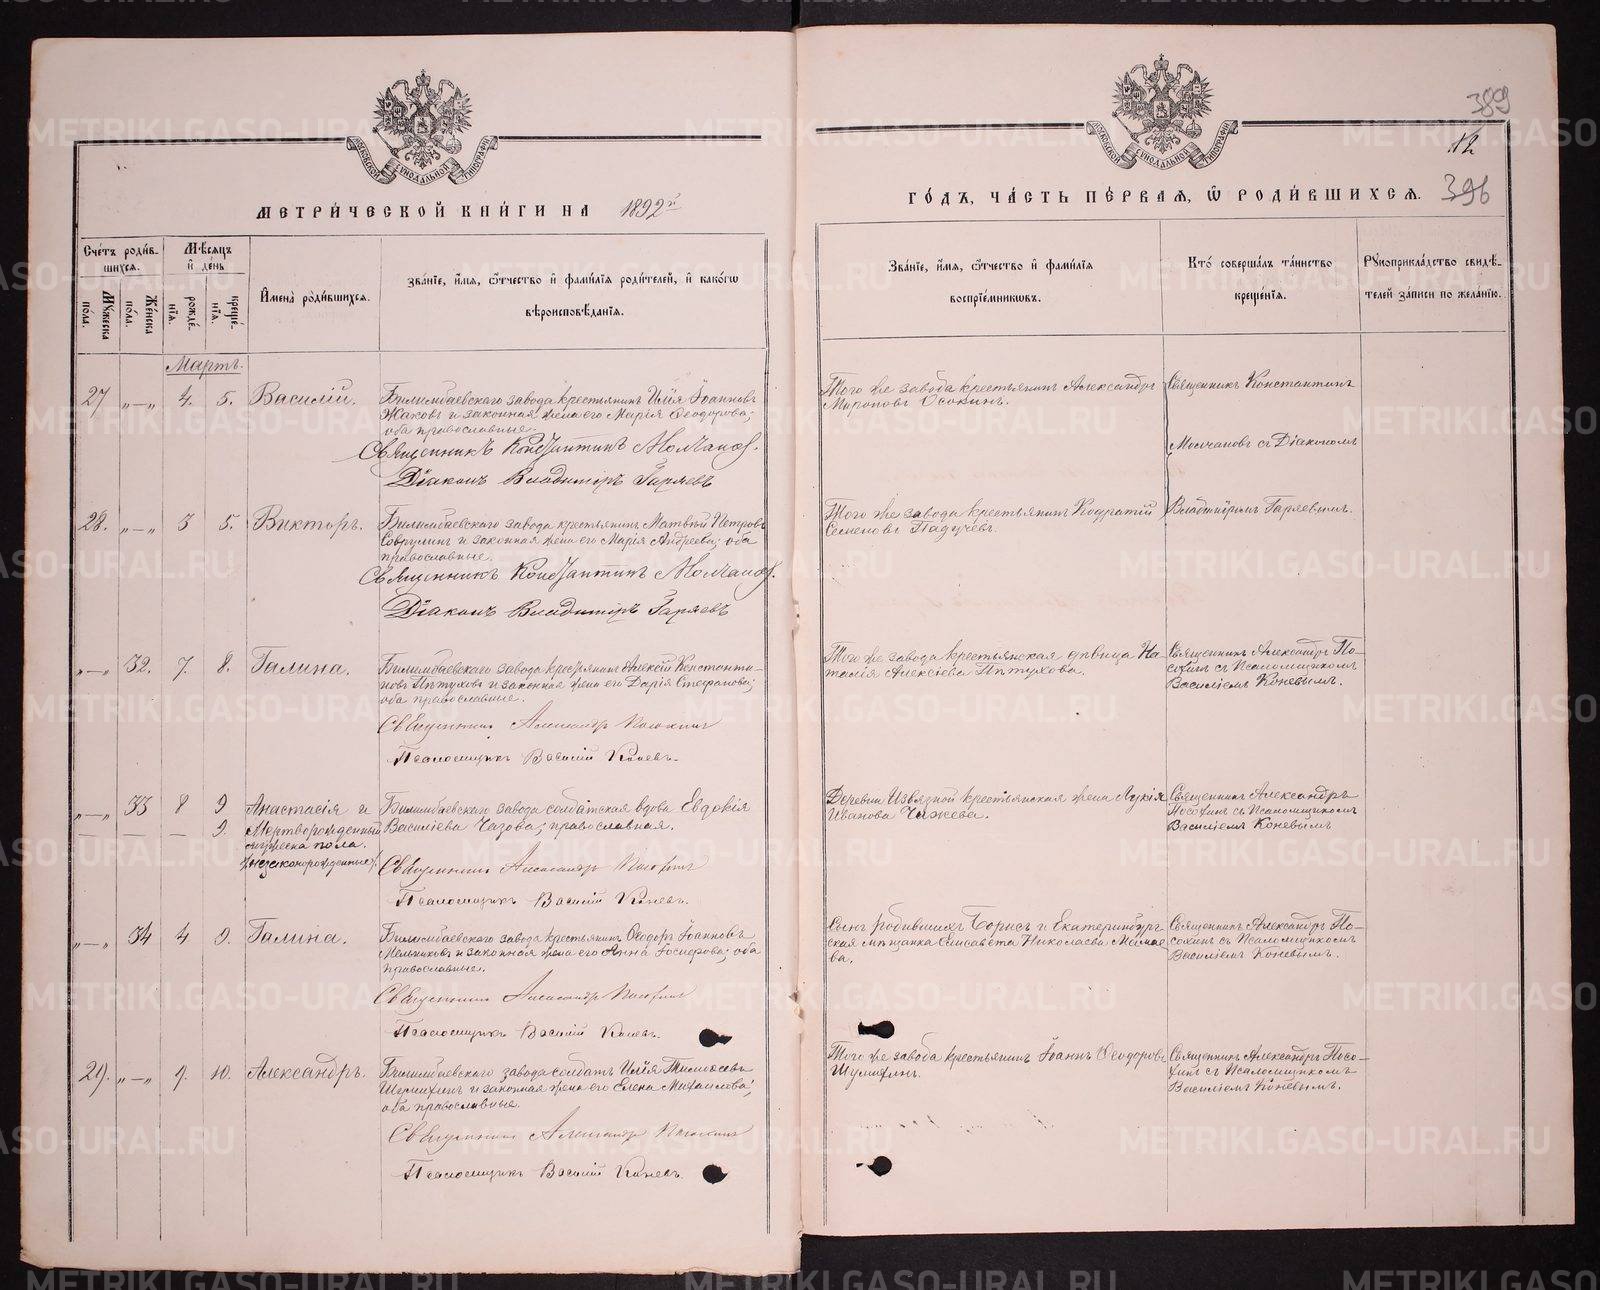 МЕТРИ́ЧЕСКОЙ КНИ́ГИ НА 1892 й
Сче́тъ роди́в-
шихся.
Мѣсяцъ
и҆ де́нь
Му́жеска
по́ла.
Же́нска
по́ла.
рожде́-
нїя.
креще́-
нїя.
И҆мена̀ роди́вшихся.
Зва́нїе, и҆́мя, ѻ҆́тчество и҆ фами́лїя роди́телей, и҆ како́гѡ
вѣроисповѣ́данїя.
Мартъ.
27 „—„ 4. 5. Василій.
Билимбаевскаго завода крестьянинъ Илія Іоанновъ
Жаковъ и законная жена его Марія Ѳеодорова;
оба православные.
Священникъ Константинъ Молчановъ.
Діаконъ Владимиръ Гаряевъ
28. „—„ 3 5. Викторъ.
Билимбаевскаго завода крестьянинъ Матвѣй Петровъ
и законная жена его Марія Андреева; оба
православные.
Священникъ Константинъ Молчановъ.
Діаконъ Владимиръ Гаряевъ
„—„ 32. 7. 8. Галина.
Билимбаевскаго завода крестьянинъ Алексій Константи-
новъ Пѣтуховъ и законная жена его Дарія Стефанова;
оба православные.
Священникъ Александръ Посохинъ
Псаломщикъ Василій Коневъ.
„—„ 33 8 9 Анастасія и
— — — 9. Мертворожденный
мужеска пола.
(незаконорожденные)
Билимбаевскаго завода солдатская вдова Евдокія
Василіева Чазова; православная.
Священникъ Александръ Посохинъ
Псаломщикъ Василій Коневъ.
„—„ 34 4 9. Галина.
Билимбаевскаго завода крестьянинъ Ѳеодоръ Іоанновъ
Мельниковъ и законная жена его Анна Іосифова; оба
православные.
Священникъ Александръ Посохинъ
Псаломщикъ Василій Коневъ.
29. „—„ 9. 10. Александръ.
Билимбаевскаго завода солдатъ Илія Тимоѳеевъ
Шумихинъ и законная жена его Елена Михаилова;
оба православные.
Священникъ Александръ Посохинъ
Псаломщикъ Василій Коневъ.
389
12
ГО́ДЪ, ЧА́СТЬ ПЕ́РВАЯ, Ѽ РОДИ́ВШИХСЯ. 396
Зва́нїе, и҆́мя, ѻ҆́тчество и҆ фами́лїя
воспрїе́мникѡвъ.
Кто̀ соверша́лъ та́инство
креще́нїя.
Рꙋкоприкла́дство свидѣ́-
телей за́писи по жела́нїю.
Того же завода крестьянинъ Александръ
Мироновъ Осокинъ.
Священникъ Константинъ
Молчановъ съ Діакономъ
Владиміромъ Гаряевымъ.
Того же завода крестьянинъ Кодратій
Семеновъ Падучевъ.
Того же завода крестьянская дѣвица На-
талія Алексіева Пѣтухова.
Священникъ Александръ По-
сохинъ съ Псаломщикомъ
Василіемъ Коневымъ.
Деревни Извязной крестьянская жена Лукія
Иванова Чижева.
Священникъ Александръ
Посохинъ съ Псаломщикомъ
Василіемъ Коневымъ
Сынъ родившихъ Борисъ и Екатеринбург-
ская мѣщанка Елисавета Николаева Мамае-
ва.
Священникъ Александръ По-
сохинъ съ Псаломщикомъ
Василіемъ Коневымъ.
Того же завода крестьянинъ Іоаннъ Ѳеодоровъ
Шумихинъ.
Священникъ Александръ Посо-
хинъ съ Псаломщикомъ
Василіемъ Коневымъ.
МОСКОВСКОЙ СѴНОДАЛЬНОЙ ТИПОГРАФІИ
МОСКОВСКОЙ СѴНОДАЛЬНОЙ ТИПОГРАФІИ
METRIKI.GASO-URAL.RU